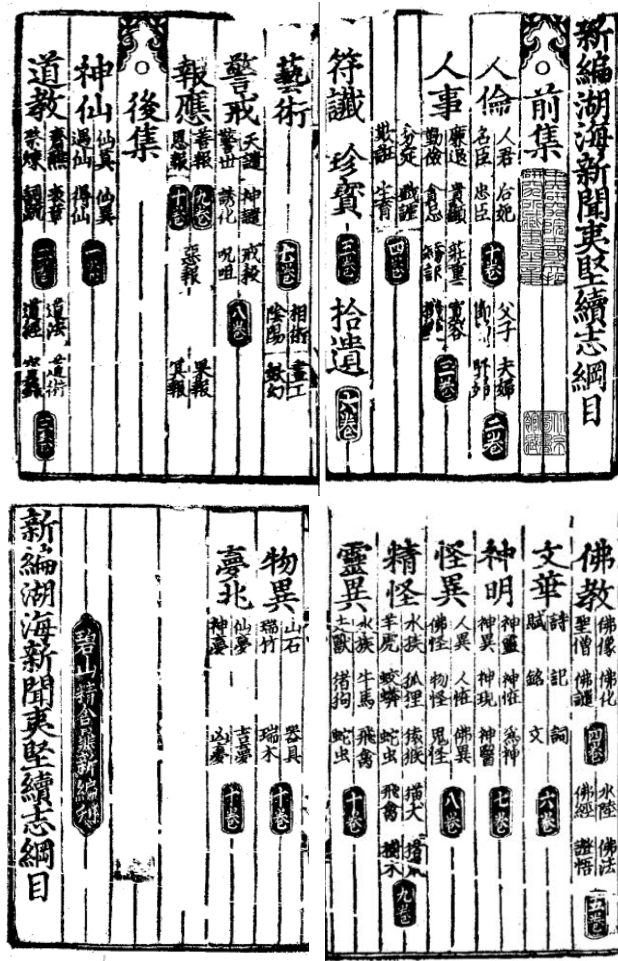 新編湖海新聞夷堅續志綱目
前集
人倫
人君 后妃
名臣 忠臣
十卷
父子 夫婦
二卷
人事
廉退 貴顯 莊重 寬容
勤儉 貪忌
三卷
分定 戲謔
欺誑 生育
四卷
符讖 珍寶 五卷 拾遺 六卷
藝術 七卷
相術 畫工
陰陽 妖幻
警戒
天譴 神譴 戒殺
警世 誘化 呪咀
八卷
報應
善報 九卷
恩報 十卷
惡報
果報
冥報
後集
神仙
仙真 仙異
遇仙 得仙
一卷
道教
齋醮 表章
二卷
道法 道術
道經
三卷
佛教
佛像 佛化
聖僧 佛讖
四卷
水陸 佛法
佛經 證悟
五卷
文華
詩 記 詞
賦 銘 文
六卷
神明
神靈 神怪 為神
神異 神現 神醫
七卷
怪異
人異 人怪 佛異
佛怪 物怪 鬼怪
八卷
精怪
水族 狐狸 猿猴 猫犬
羊虎 蛟蟒 蛇虫 飛禽 樹木
九卷
靈異
水族 牛馬 飛禽
土獸 猪狗 蛇虫
十卷
物異
山石 器具
瑞竹 瑞木
十卷
夢兆
仙夢 吉夢
神夢 凶夢
十卷
碧山精舍 新編刊
新編湖海新聞夷堅續志綱目